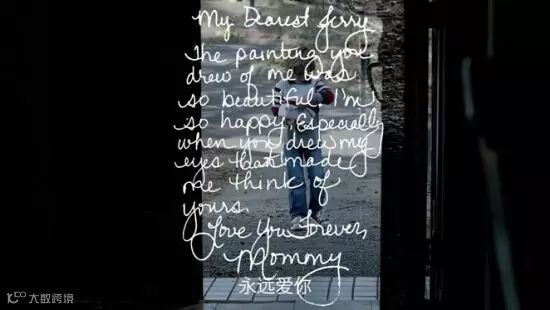 My Dearest Jerry
The painting you
drew of me was
so beautiful. I'm
so happy. Especially
when you drew my
eyes that made
me think of
yours.
Love You Forever,
Mommy
永远爱你
大数跨境